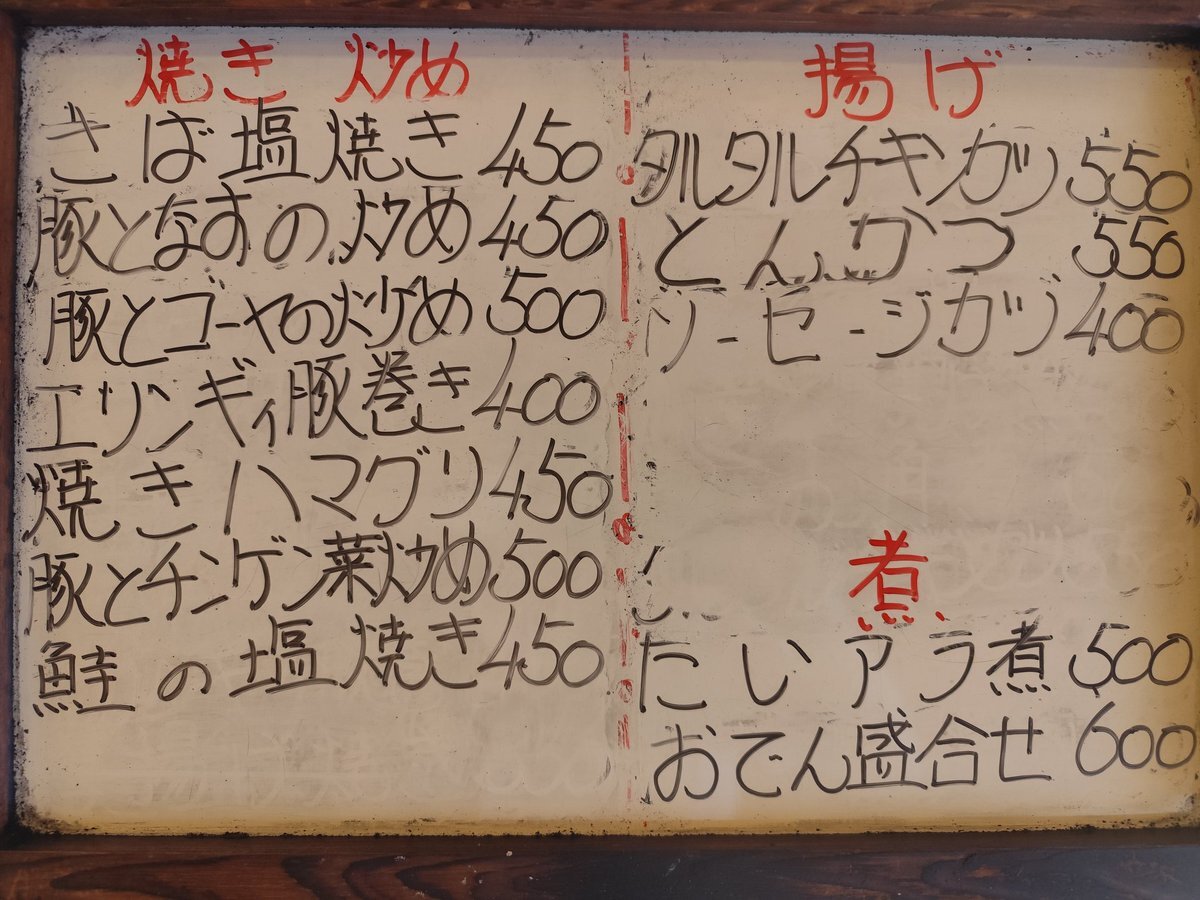 焼き 炒め
さば塩焼き 450
豚となすの炒め 450
豚とゴーヤの炒め 500
エリンギィ豚巻き 400
焼きハマグリ 450
豚とチンゲン菜炒め 500
鮭の塩焼き 450
揚げ
タルタルチキンカツ 550
とんかつ 550
ソーセージカツ 400
煮
たいアラ煮 500
おでん盛合せ 600